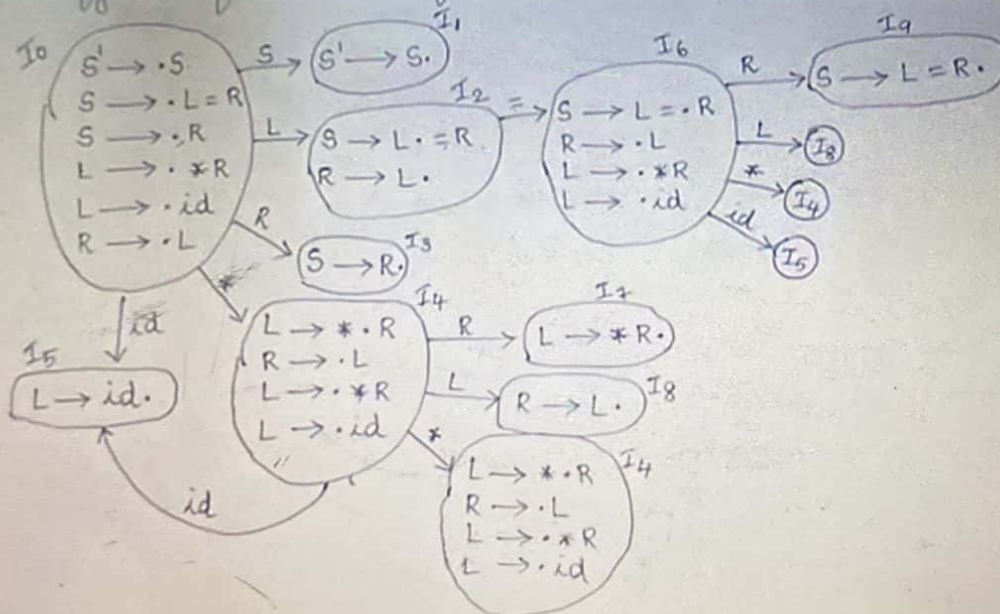 I0
S' → ·S
S → ·L = R
S → ·R
L → · *R
L → ·id
R → ·L
S
I1
S' → S·
L
I2
S → L· = R
R → L·
=
I6
S → L = ·R
R → ·L
L → · *R
L → ·id
R
I9
S → L = R·
L
I8
*
I4
id
I5
R
I3
S → R·
*
I4
L → * · R
R → ·L
L → · *R
L → ·id
R
I7
L → *R·
L
I8
R → L·
*
I4
L → * · R
R → ·L
L → · *R
L → ·id
id
I5
L → id·
id